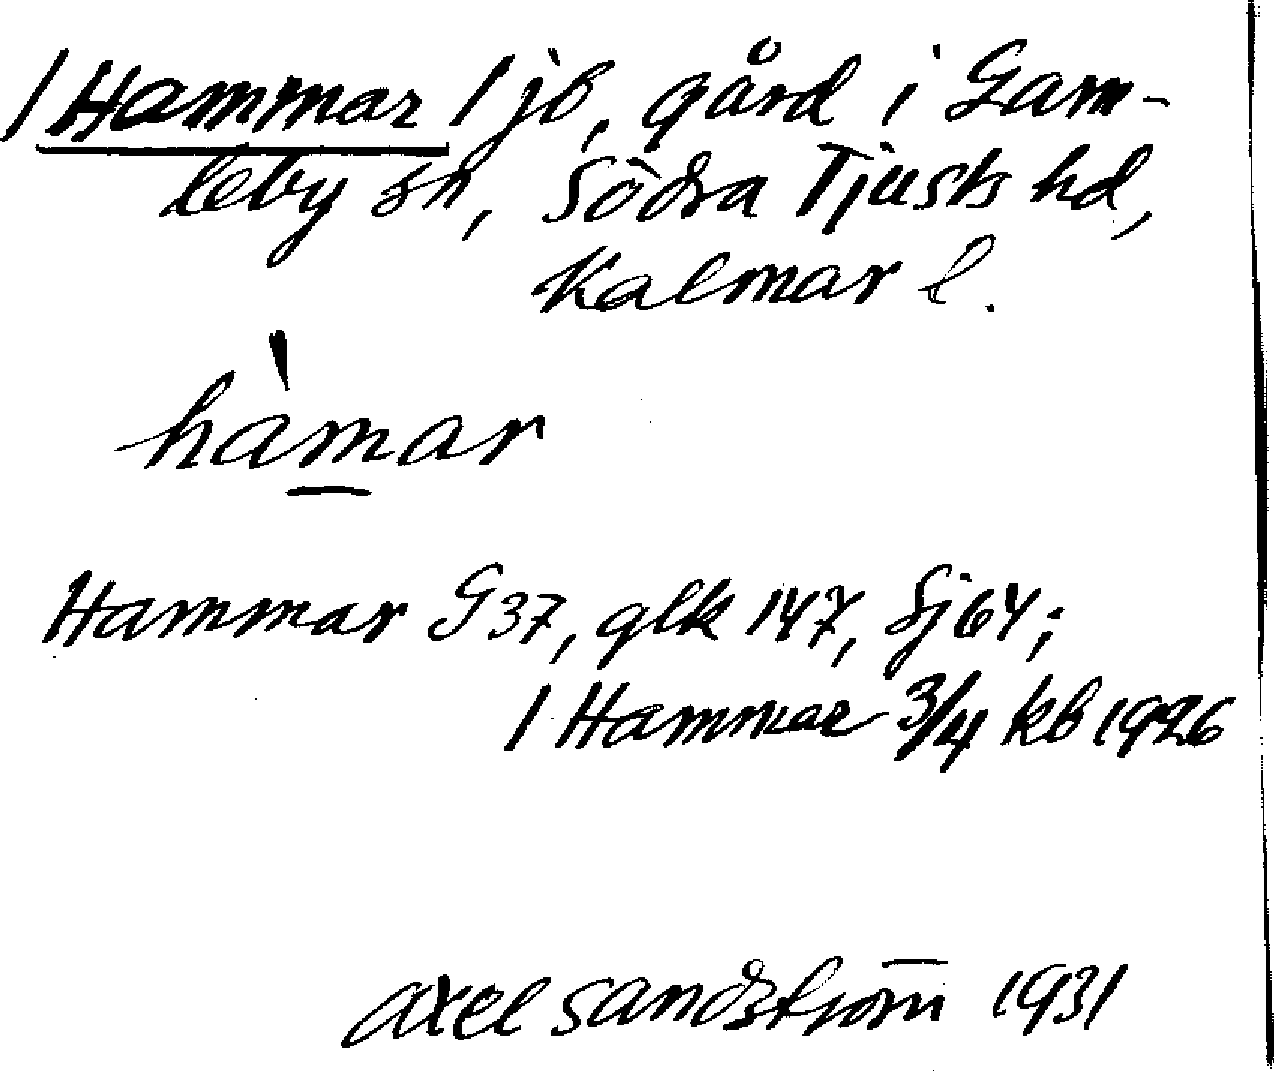 1 Hammar 1 jb, gård i Gam-
leby sn, Södra Tjusts hd,
Kalmar l.
hàmar
Hammar G37, glk 147, Sj64;
1 Hammar 3/4 kb 1926
Axel Sandström 1931